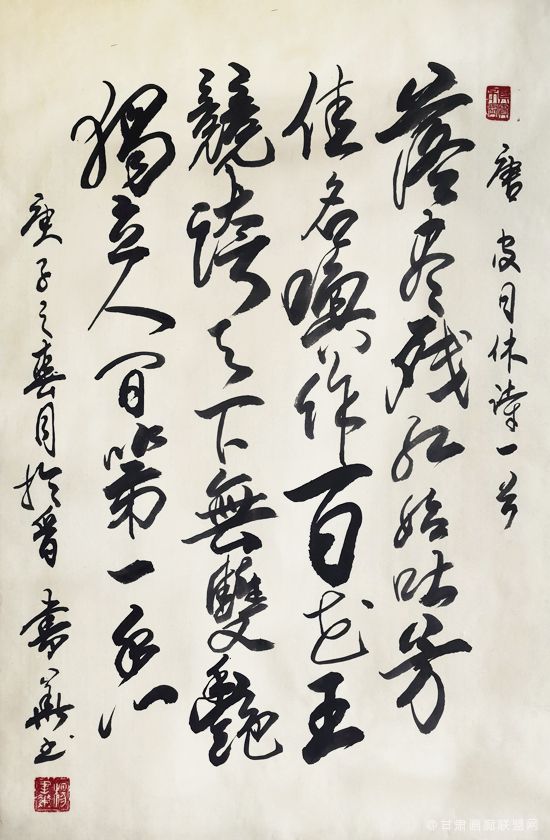 唐 皮日休诗一首
落尽残红始吐芳
佳名唤作百花王
競誇天下無雙艷
獨立人间第一香
庚子之春月於晋 書華书
@甘肃画廊联盟网